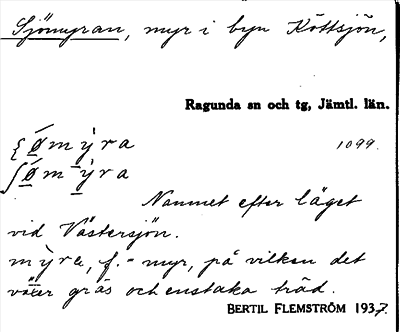 Sjömyran, myr i byn Köttsjön,
Ragunda sn och tg, Jämtl. län.
ø m y̆ r a 1099.
ʃ ø m y r a
Namnet efter läget
vid Västersjön.
my̆ra, f. = myr, på vilken det
växer gräs och enstaka träd.
BERTIL FLEMSTRÖM 1937.